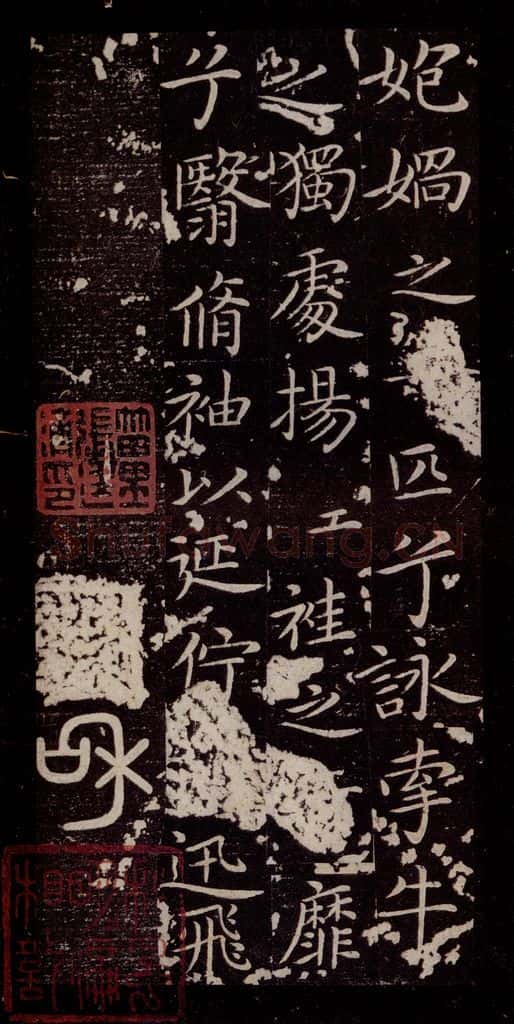 㚿媧之匹兮詠牽牛
之獨處揚袿之靡
兮翳脩袖以延佇迅飛